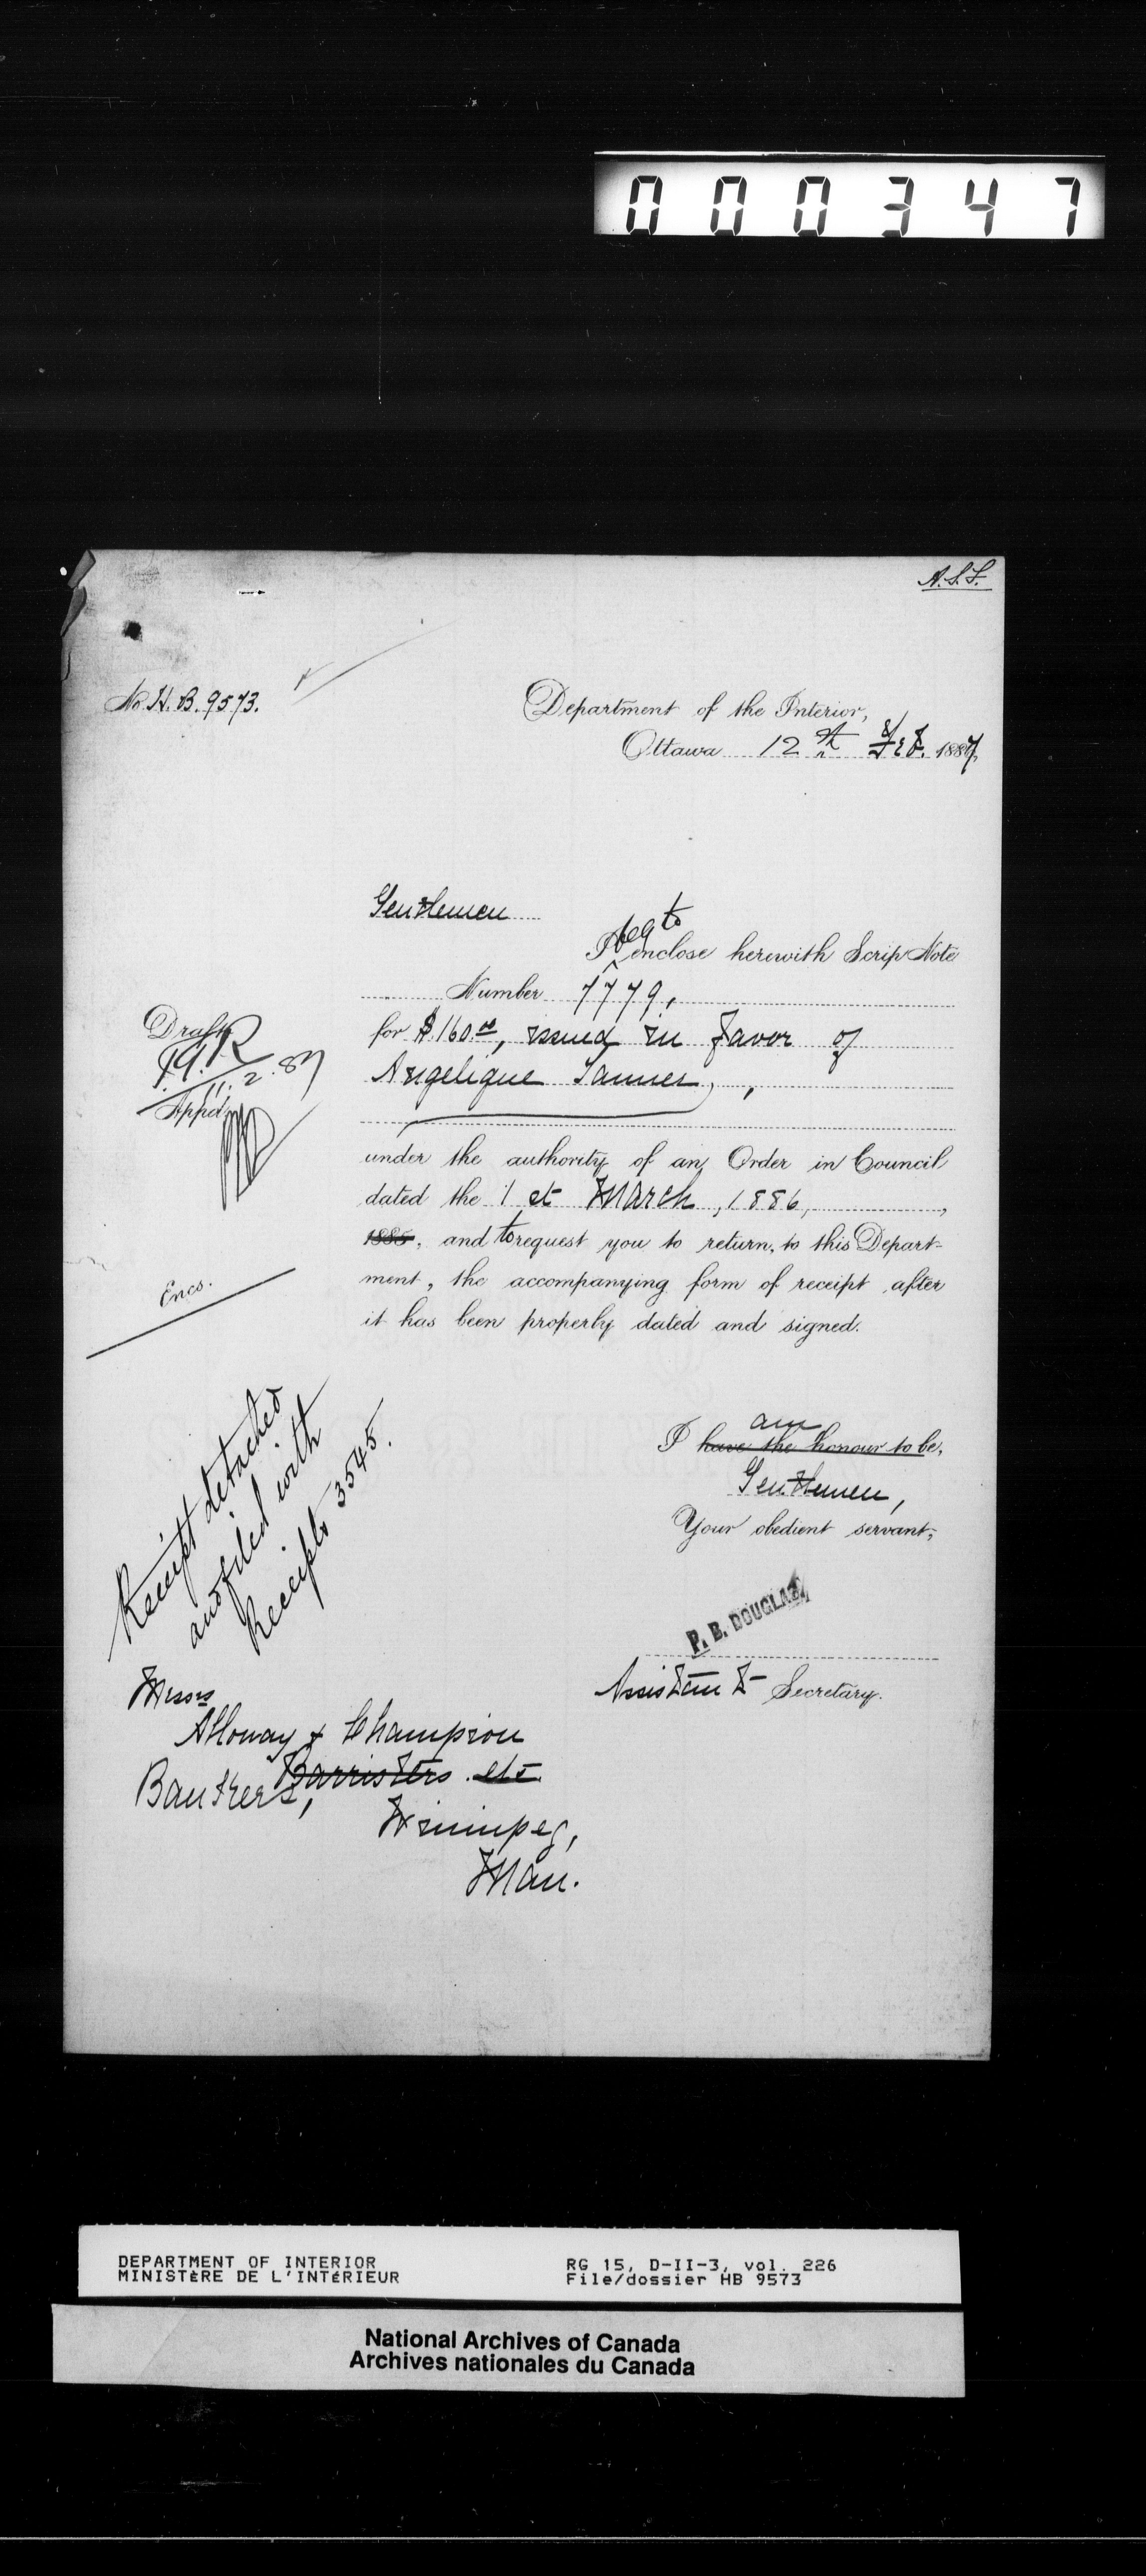 000347
A.S.S.
No. H. B. 9573.
Department of the Interior,
Ottawa 12th Feb. 1887,
Gentlemen
beg to
I enclose herewith Scrip Note
Number 7779,
for $160.00, issued in favor of
Angelique Tanner,
under the authority of an Order in Council
dated the 1st March, 1886,
1885, and to request you to return, to this Depart-
ment, the accompanying form of receipt after
it has been properly dated and signed.
Draft
11.2.87
Appd.
Encs.
am
I have the honour to be,
Gentlemen,
Your obedient servant,
P. B. DOUGLAS,
Assistant Secretary.
Receipt detached
and filed with
Receipts 3545.
Messrs
Alloway & Champion
Barristers etc
Bankers,
Winnipeg,
Man.
DEPARTMENT OF INTERIOR
MINISTÈRE DE L'INTÉRIEUR
RG 15, D-II-3, vol. 226
File/dossier HB 9573
National Archives of Canada
Archives nationales du Canada